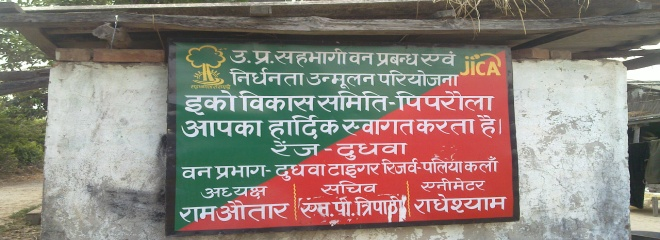 उ.प्र.सहभागी वन प्रबन्ध एवं
निर्धनता उन्मूलन परियोजना
JICA
इको विकास समिति-पिपरौला
आपका हार्दिक स्वागत करता है।
रेंज-दुधवा
वन प्रभाग-दुधवा टाइगर रिजर्व-पलिया कलाँ
अध्यक्ष सचिव एनीमेटर
रामऔतार (एस.पी.त्रिपाठी) राधेश्याम